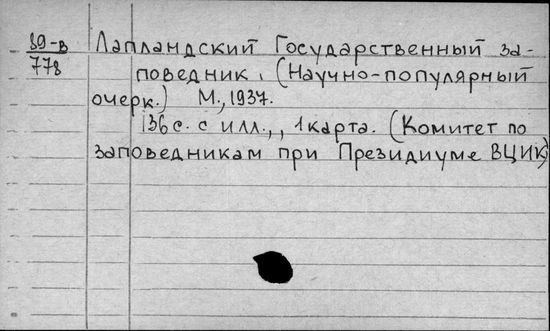 39-в Лапландский Государственный за-
778 поведник. (Научно-популярный
очерк.) М., 1937.
136 с. с илл., , 1 карта. (Комитет по
заповедникам при Президиуме ВЦИК)